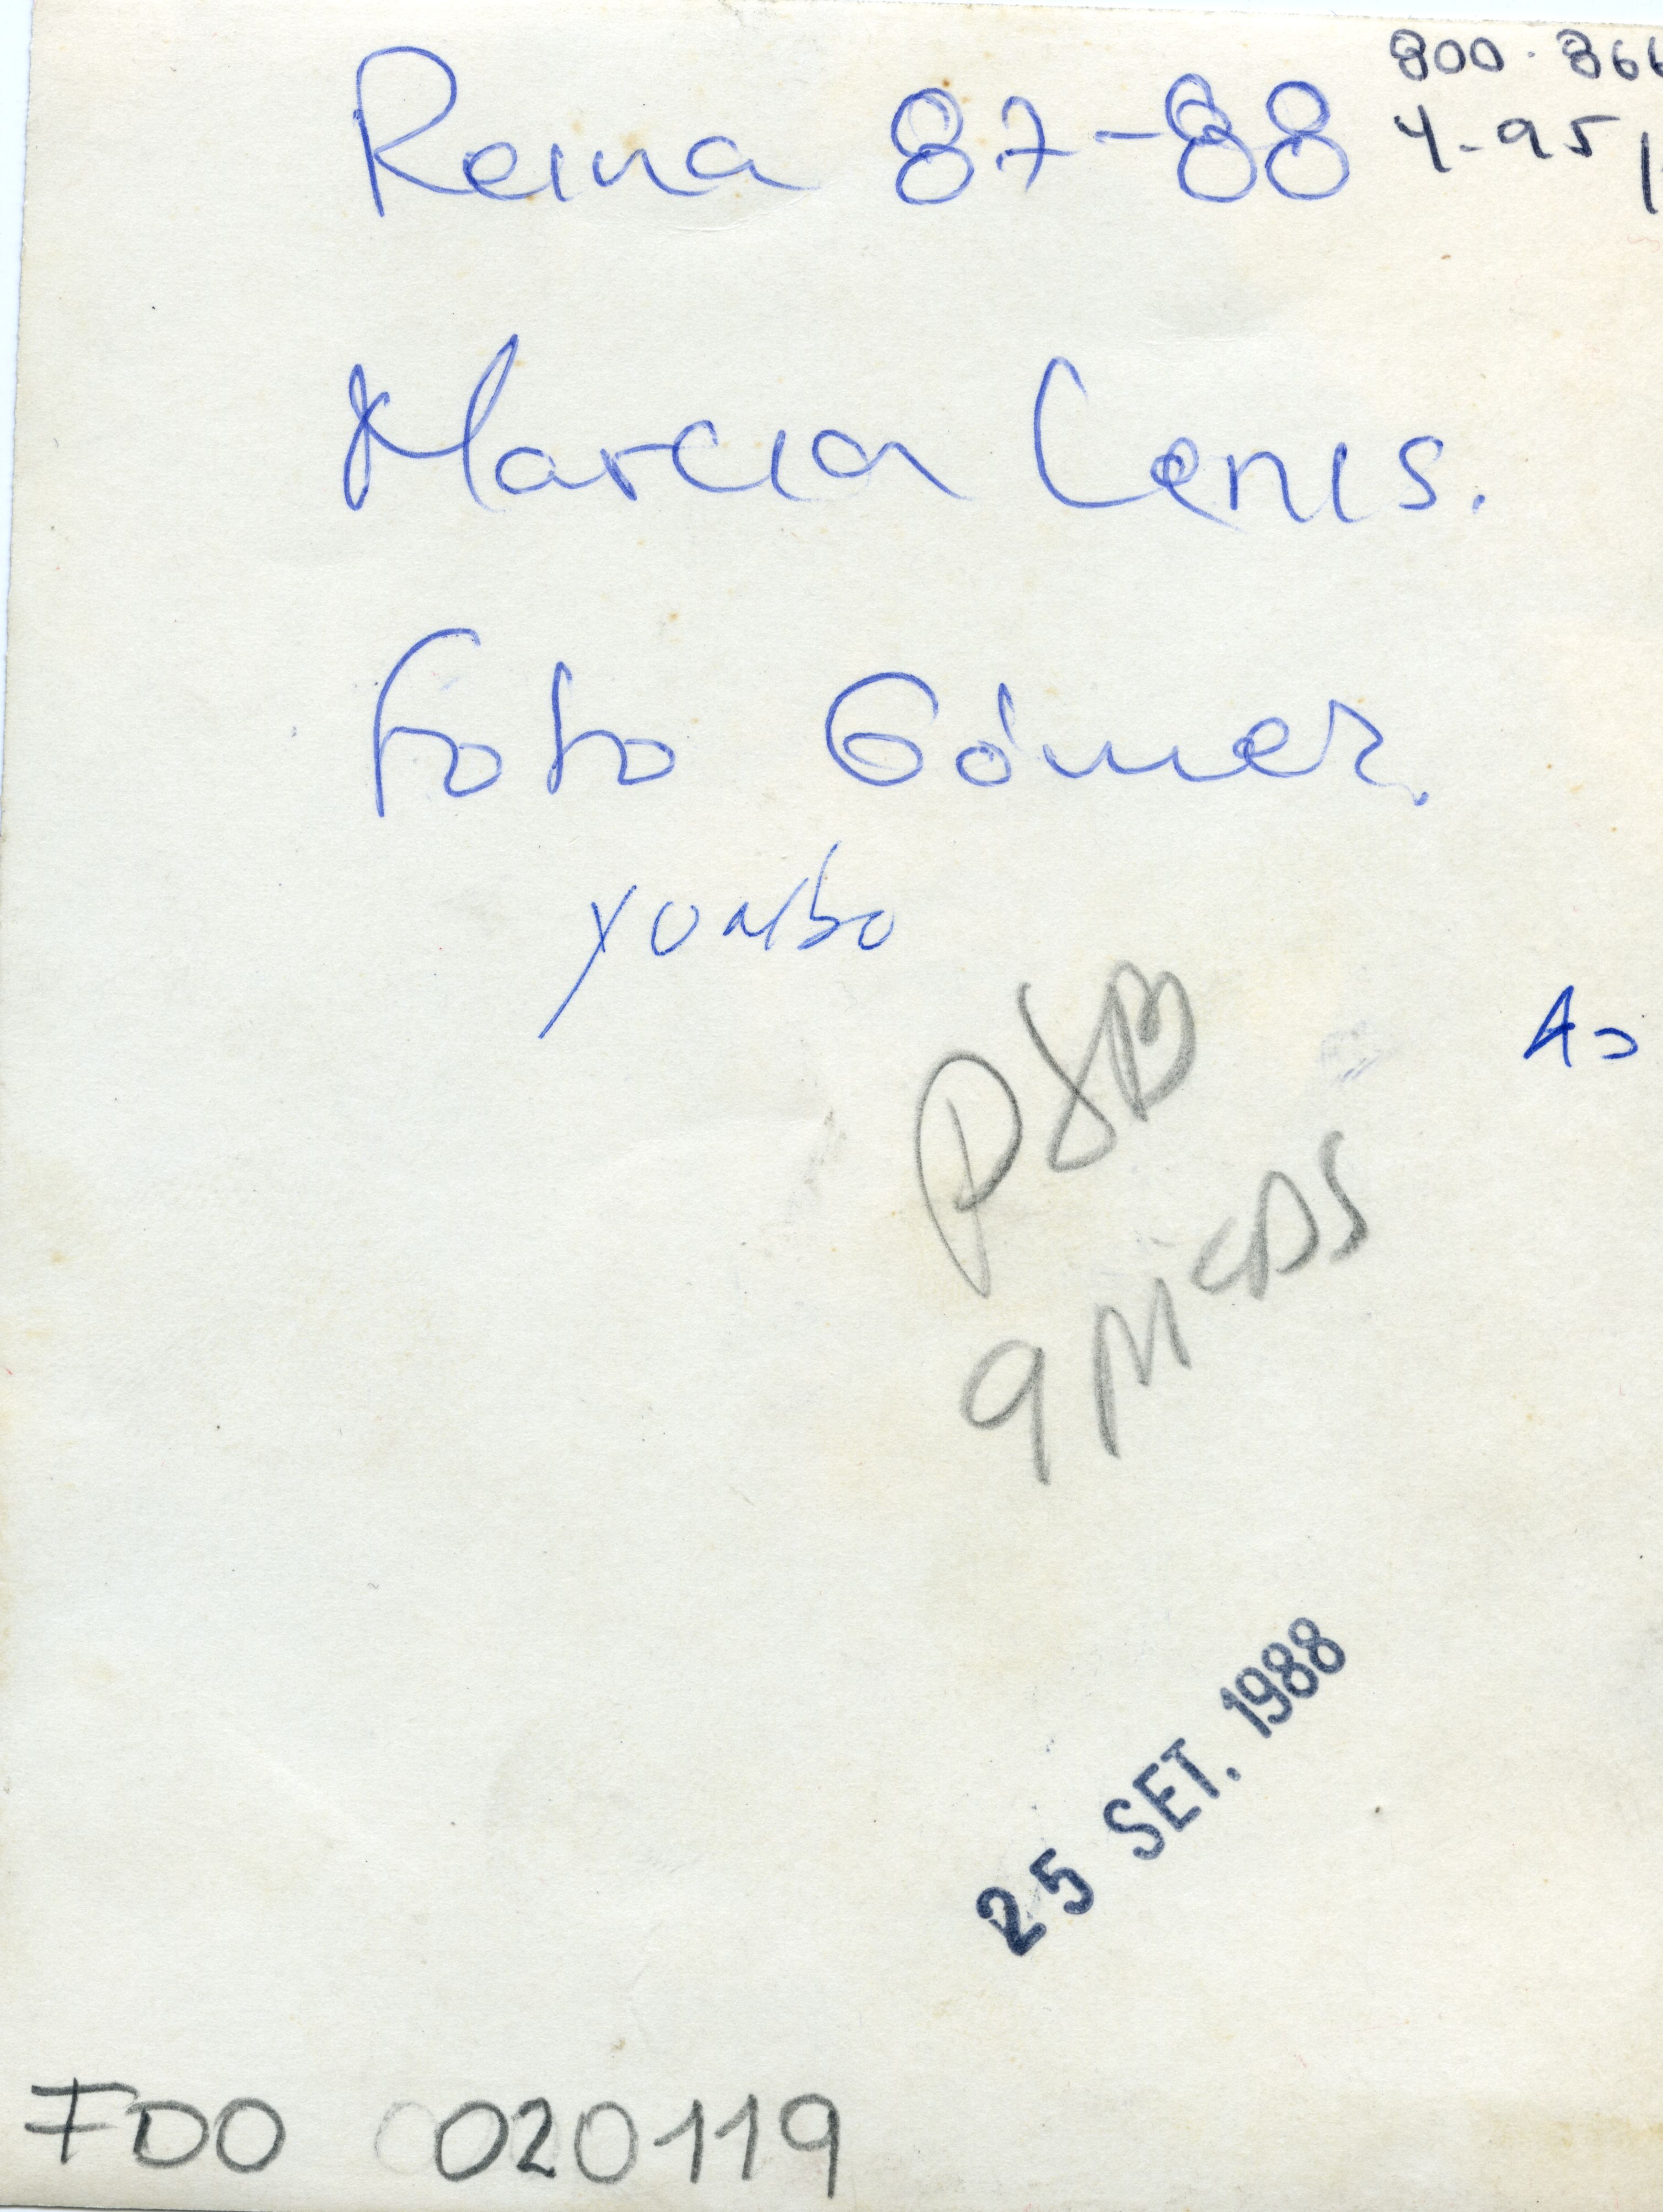 Reina 87-88
800-866
4-95
Marcia Lenis.
Foto Gómez.
Yumbo
9 Micas
25 SET. 1988
FDO 020119